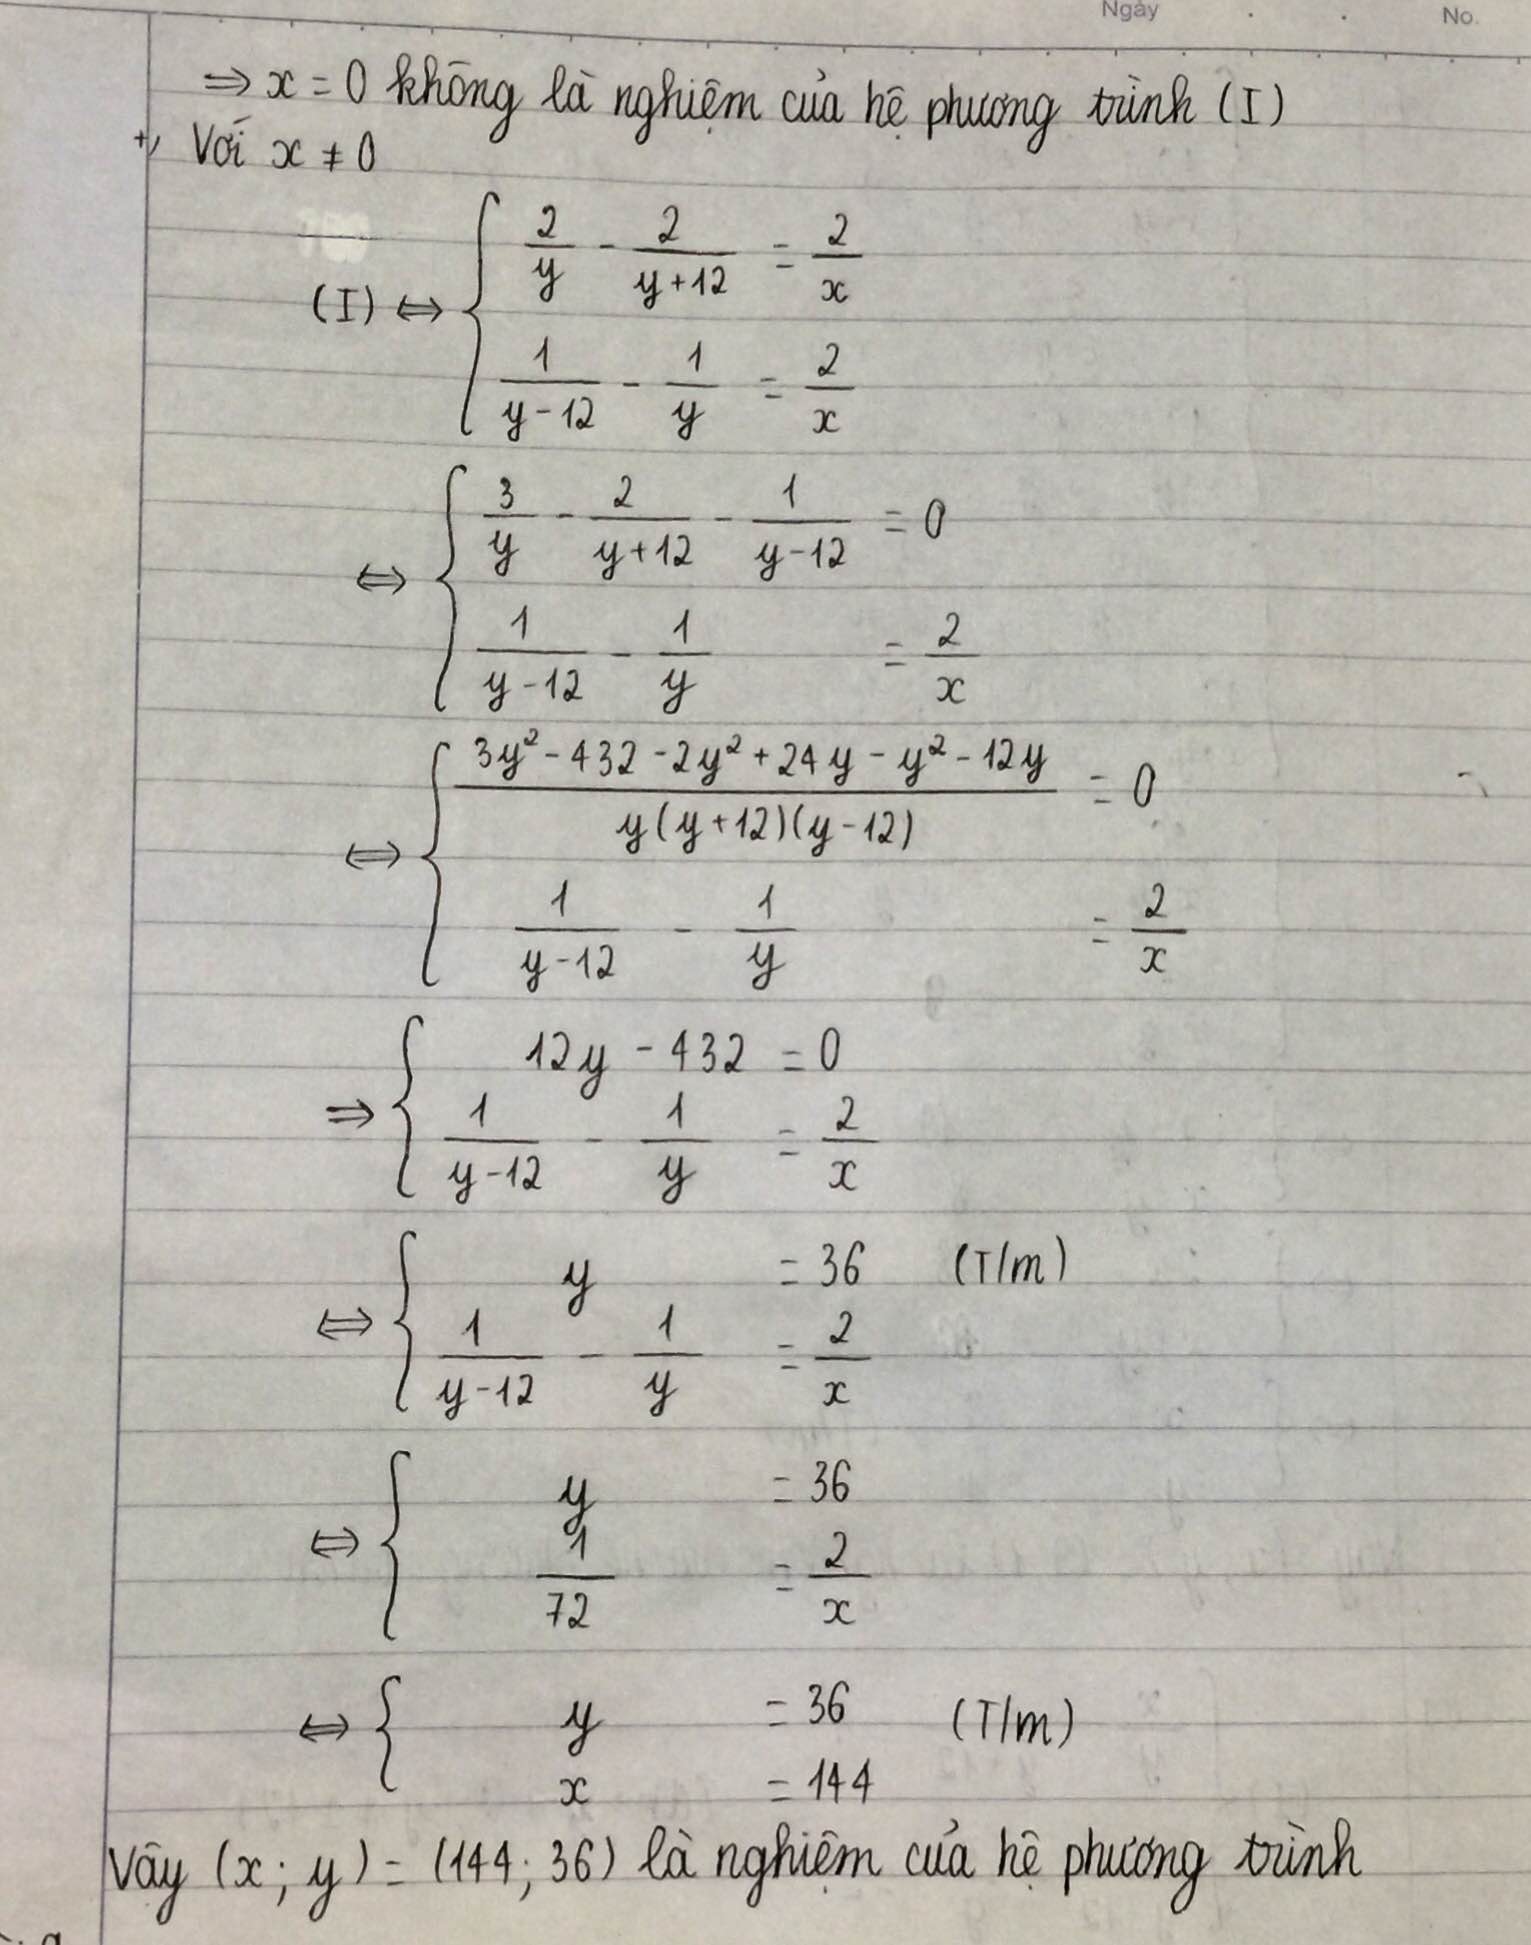 Ngày No.
⇒ x = 0 không là nghiệm của hệ phương trình (I)
+, Với x ≠ 0
(I) ⇔ { 2/y - 2/(y+12) = 2/x
1/(y-12) - 1/y = 2/x
⇔ { 3/y - 2/(y+12) - 1/(y-12) = 0
1/(y-12) - 1/y = 2/x
⇔ { (3y² - 432 - 2y² + 24y - y² - 12y)/(y(y+12)(y-12)) = 0
1/(y-12) - 1/y = 2/x
⇒ { 12y - 432 = 0
1/(y-12) - 1/y = 2/x
⇔ { y = 36 (T/m)
1/(y-12) - 1/y = 2/x
⇔ { y = 36
1/72 = 2/x
⇔ { y = 36 (T/m)
x = 144
Vậy (x; y) = (144; 36) là nghiệm của hệ phương trình